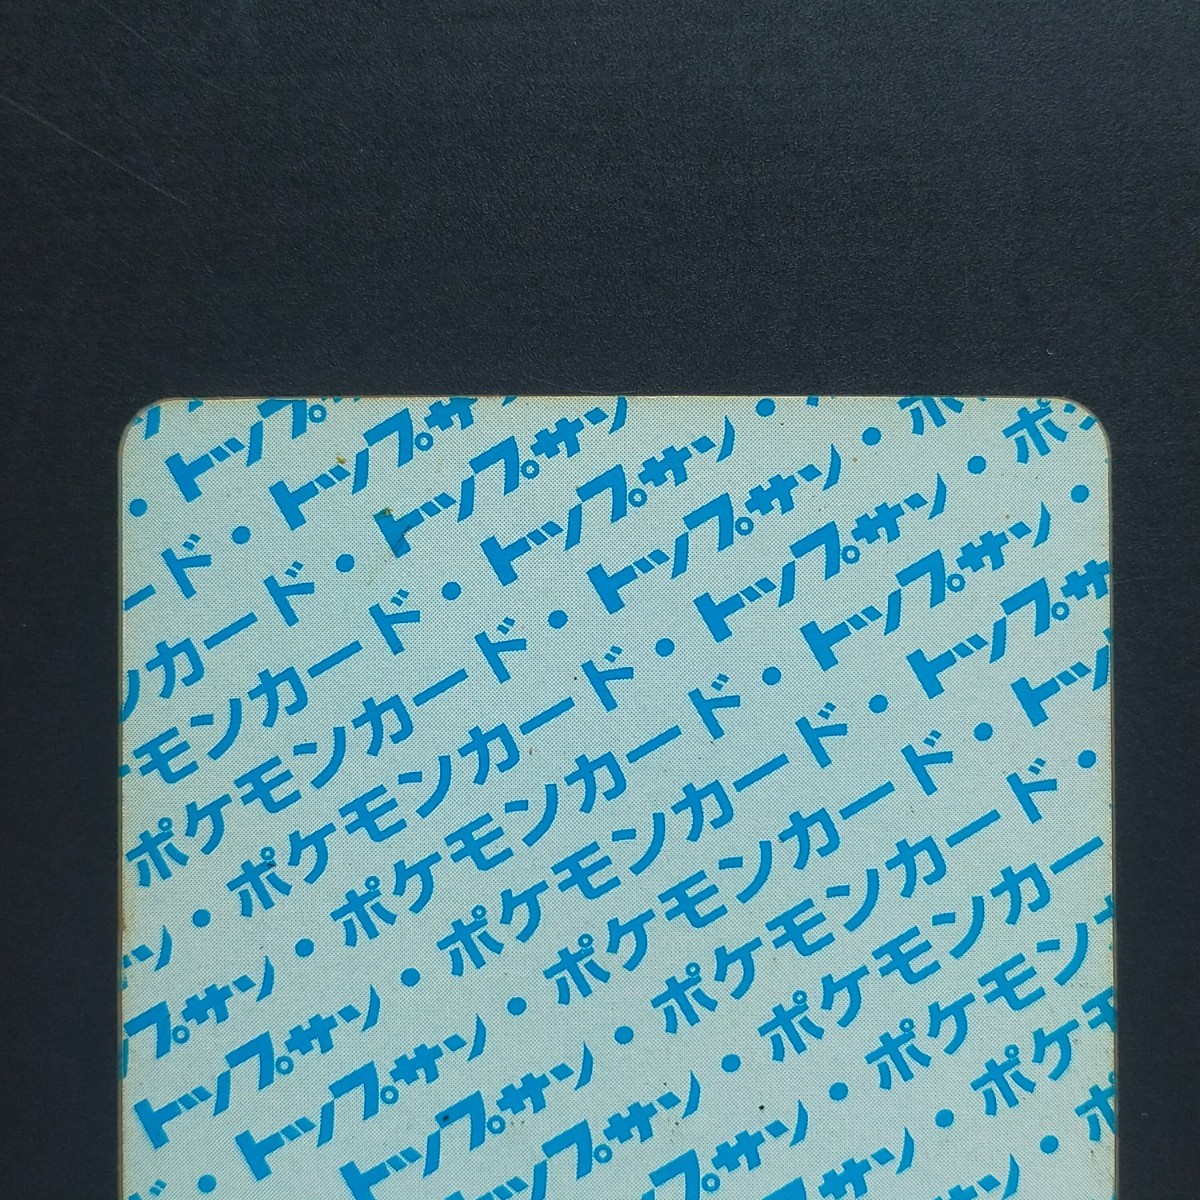 トップサン
トップサン
トップサン・
トップサン・ポ
ード・トップサン・ポ
ンカード・トップサン・
モンカード・トップサン
ポケモンカード・トップ
・ポケモンカード・トッ
ン・ポケモンカード・
プサン・ポケモンカード・
トップサン・ポケモンカード
・トップサン・ポケモンカー
トップサン・ポケモンカ
ップサン・ポケモン
プサン・ポケ
サン・ポ